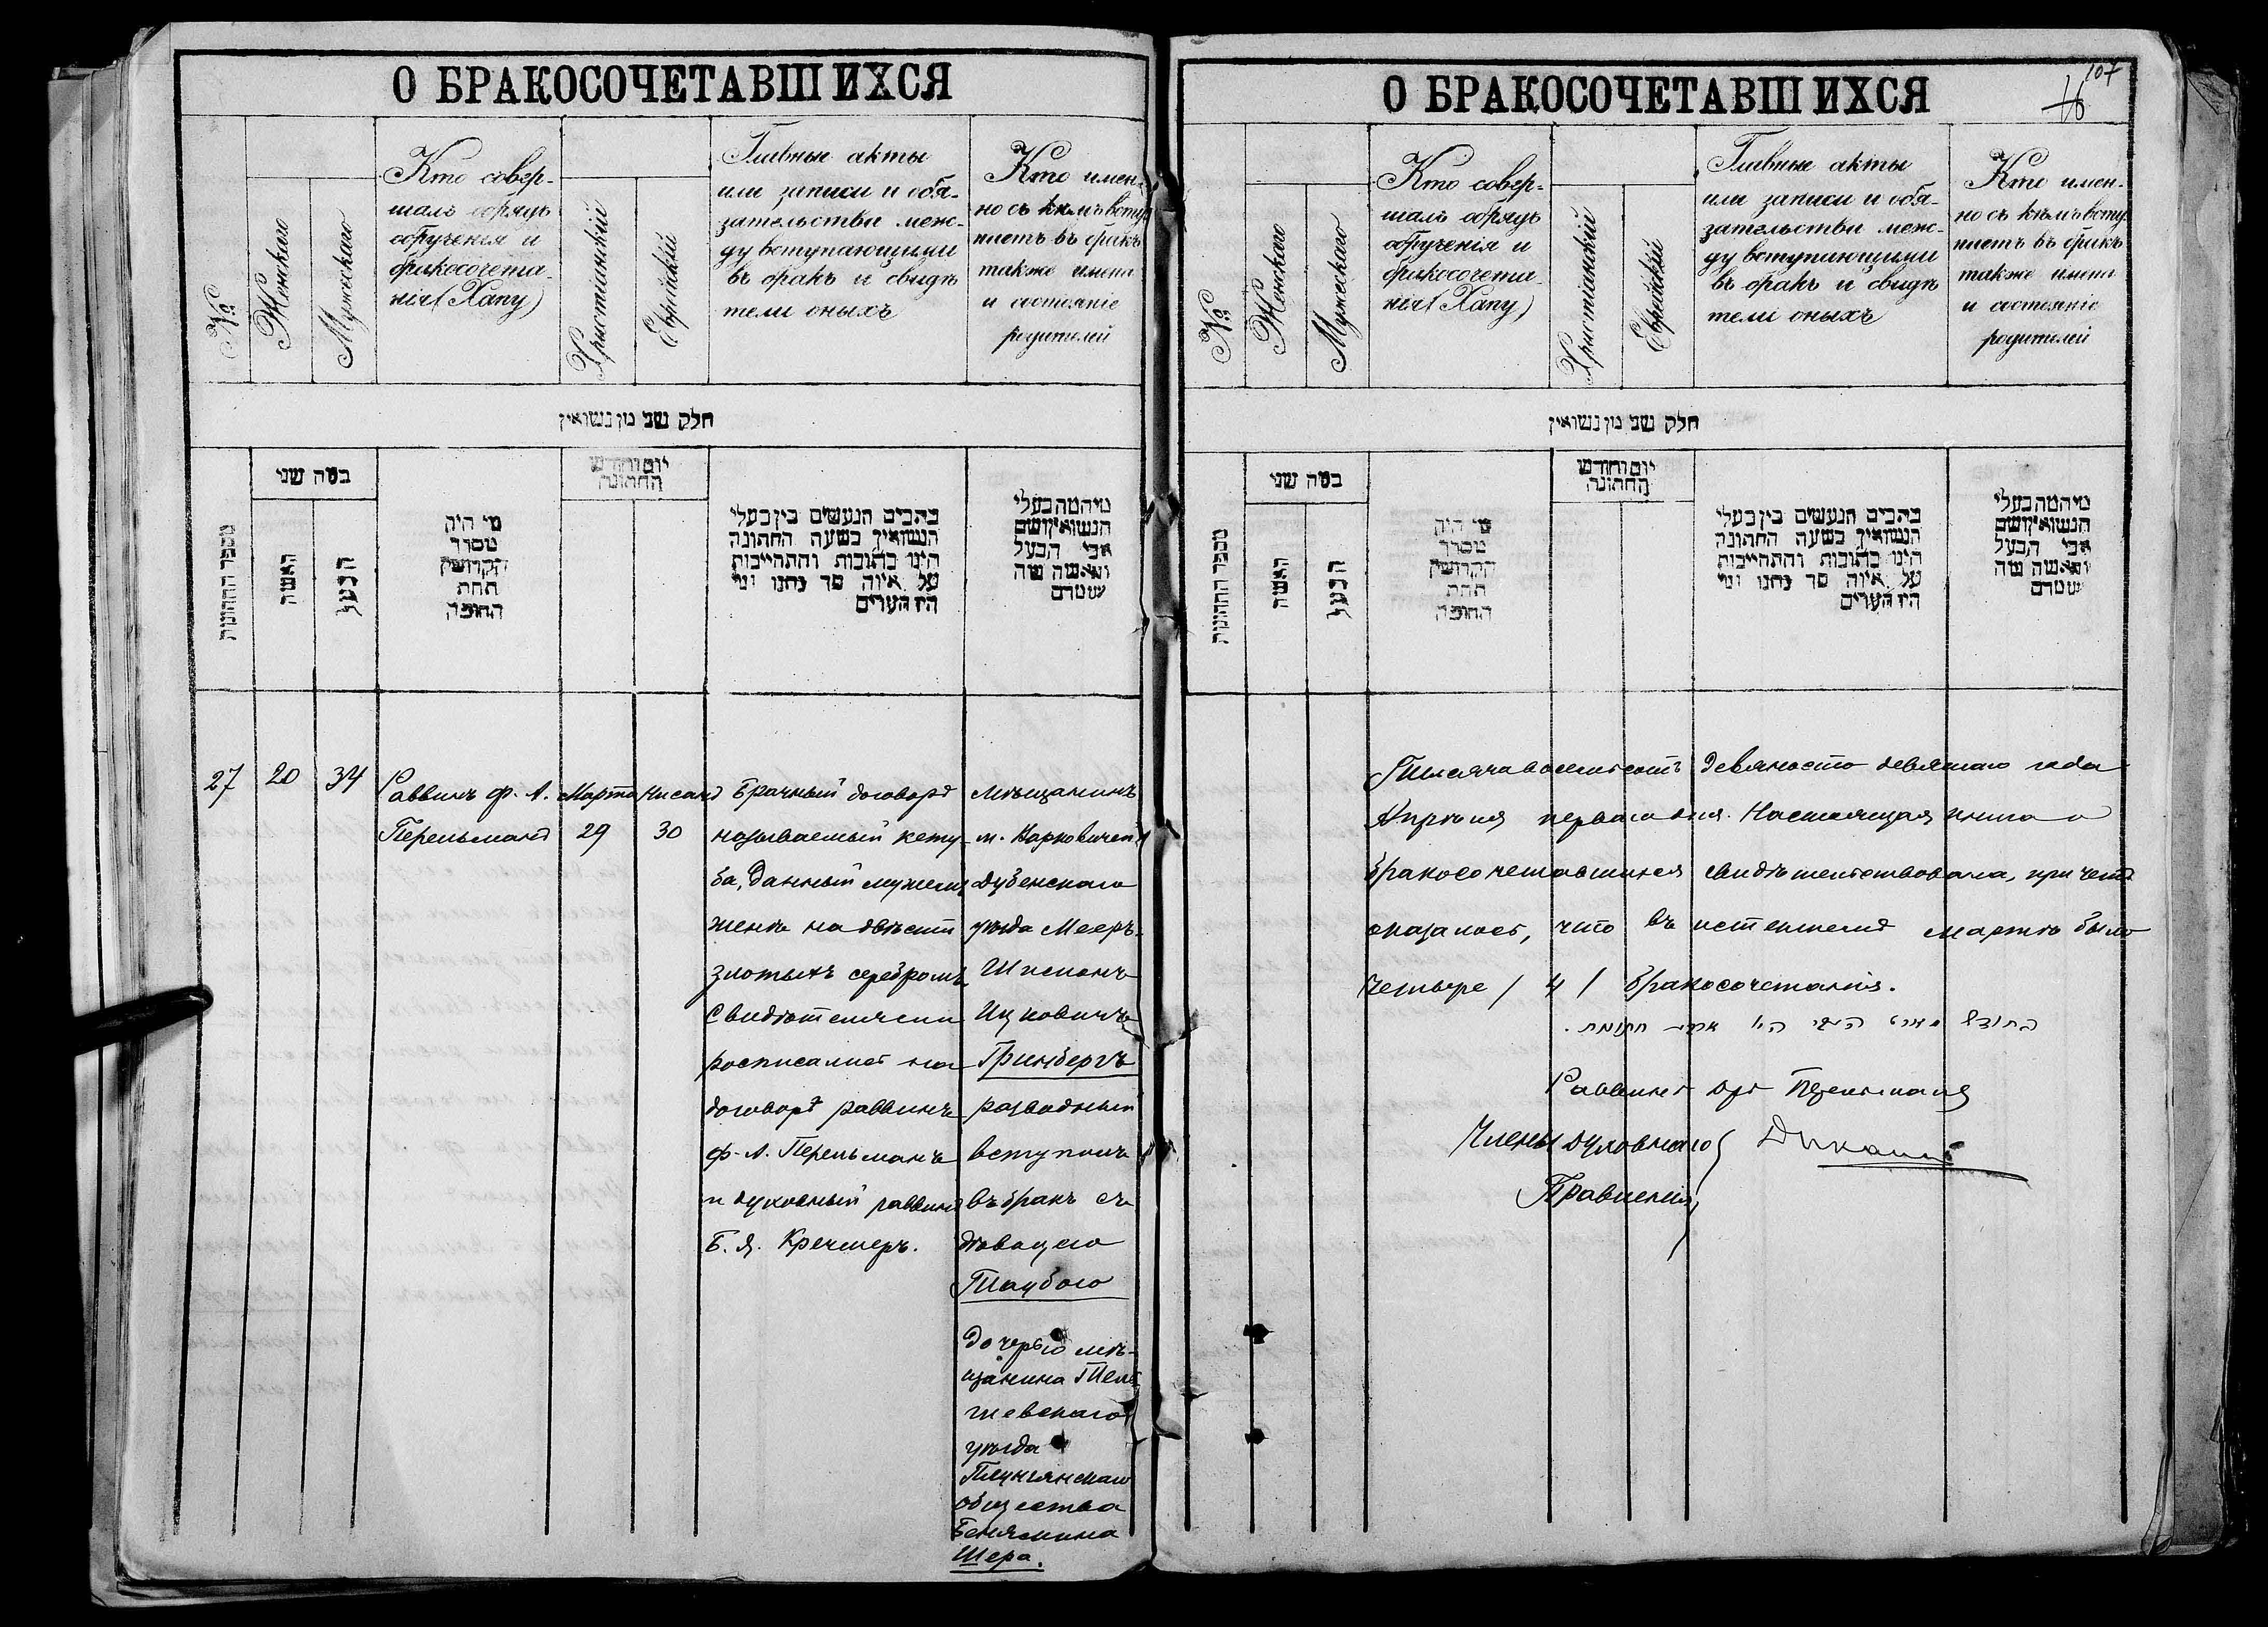 О БРАКОСОЧЕТАВШИХСЯ
№
Женскаго
Мужескаго
Кто совер-
шалъ обрядъ
обрученія и
бракосочета-
нія (Хапу)
Христіанскій
Еврейскій
Главные акты
или записи и обя-
зательства меж-
ду вступающими
въ бракъ и свидѣ
тели оныхъ
Кто имен-
но съ кѣмъ всту
паетъ въ бракъ
также имена
и состояніе
родителей
חלק שני מן נשואין
כמה שני
יום וחודש
החתונה
מספר החתונות
האשה
הבעל
מי היה
מסדר
הקדושין
תחת
החופה
כתבים הנעשים בין בעלי
הנשואין בשעה החתונה
היינו כתובות והתחייבות
על איזה סך נתנו ומי
היו העדים
מי המה בעלי
הנשואין ושם
אבי הבעל
והאשה מה
שמם
27 20 34
Раввинъ Ф. Л.
Перельманъ
Марта
29
Нисанъ
30
Брачный договоръ
называемый кету-
ба, данный мужемъ
женѣ на двѣсти
злотыхъ серебромъ
Свидѣтелями
росписались на
договорѣ раввинъ
Ф. Л. Перельманъ
и духовный раввинъ
Б. Я. Кречмеръ.
мѣщанинъ
м.
Дубенскаго
уѣзда Мееръ-
Шименъ
Ицковичъ
Гринбергъ
разводный
вступилъ
въ бракъ съ
дѣвицею
Таубою
дочерью мѣ-
щанина Тель
шевскаго
уѣзда
Плунгянскаго
общества
Беніамина
Шера.
О БРАКОСОЧЕТАВШИХСЯ
107
16
№
Женскаго
Мужескаго
Кто совер-
шалъ обрядъ
обрученія и
бракосочета
нія (Хапу)
Христіанскій
Еврейскій
Главные акты
или записи и обя-
зательства меж-
ду вступающими
въ бракъ и свидѣ
тели оныхъ
Кто имен-
но съ кѣмъ всту
паетъ въ бракъ
также имена
и состояніе
родителей
חלק שני מן נשואין
כמה שני
יום וחודש
החתונה
מספר החתונות
האשה
הבעל
מי היה
מסדר
הקדושין
תחת
החופה
כתבים הנעשים בין בעלי
הנשואין בשעה החתונה
היינו כתובות והתחייבות
על איזה סך נתנו ומי
היו העדים
מי המה בעלי
הנשואין ושם
אבי הבעל
והאשה מה
שמם
Тысяча восемьсотъ девяносто девятаго года
Апрѣля перваго дня. Настоящая книга о
бракосочетавшихся свидѣтельствована, при чемъ
оказалось, что въ истекшемъ мартѣ было
четыре / 4 / бракосочетанія.
Раввинъ Перельманъ
Члены Духовнаго
Правленія